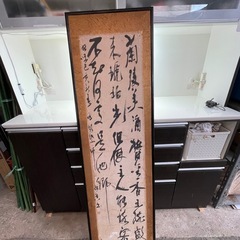 蘭陵美酒鬱金香玉椀盛
来琥珀光但使主人能醉客
不知何處是他鄉